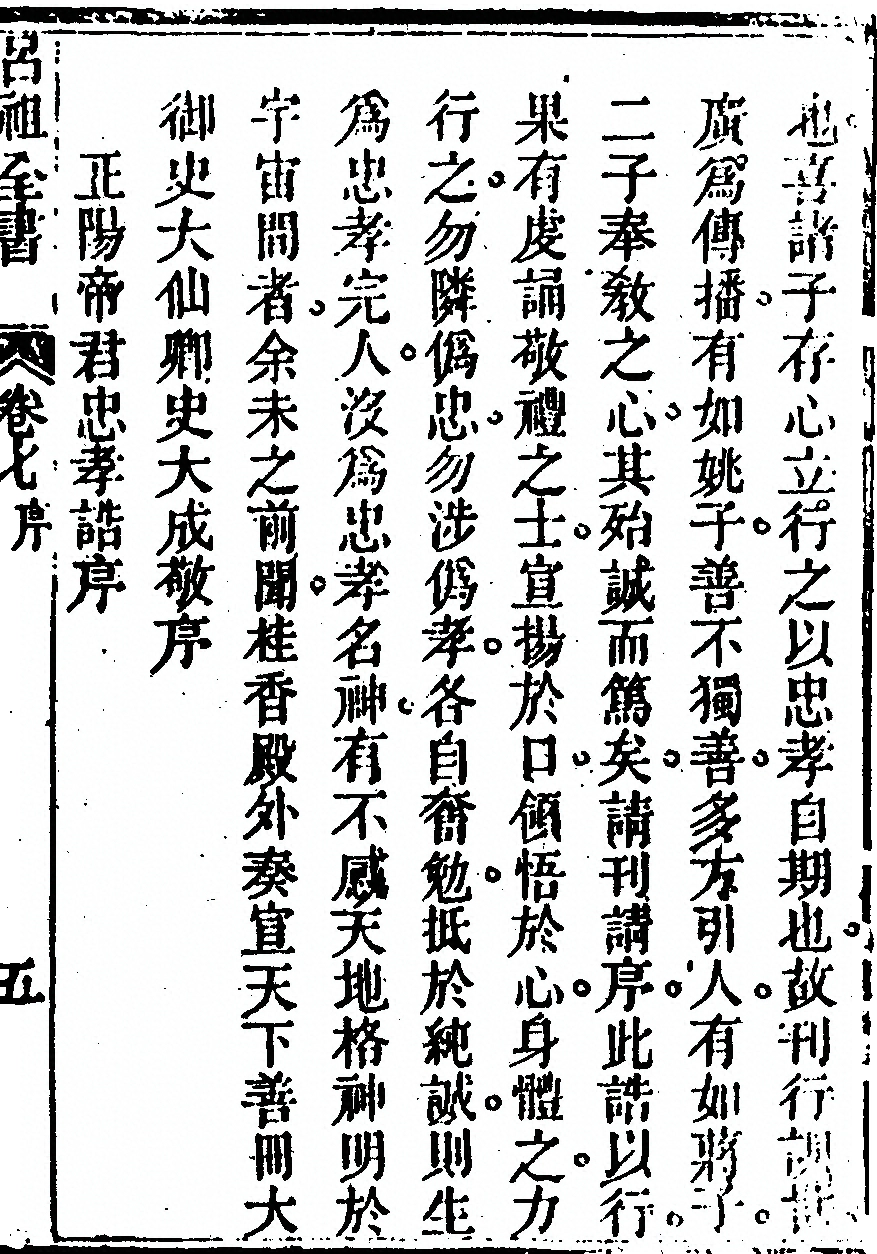 也喜諸子存心立行之以忠孝自期也故刊行訓世
廣為傳播有如姚子善不獨善多方引人有如蔣子
二子奉敎之心其殆誠而篤矣請刊請序此誥以行
果有虔誦敬禮之士宣揚於口領悟於心身體之力
行之勿隣偽忠勿涉偽孝各自奮勉抵於純誠則生
為忠孝完人沒為忠孝名神有不感天地格神明於
宇宙間者余未之前聞桂香殿外奏宣天下善冊大
御史大仙卿史大成敬序
正陽帝君忠孝誥序
呂祖全書 卷七序 五